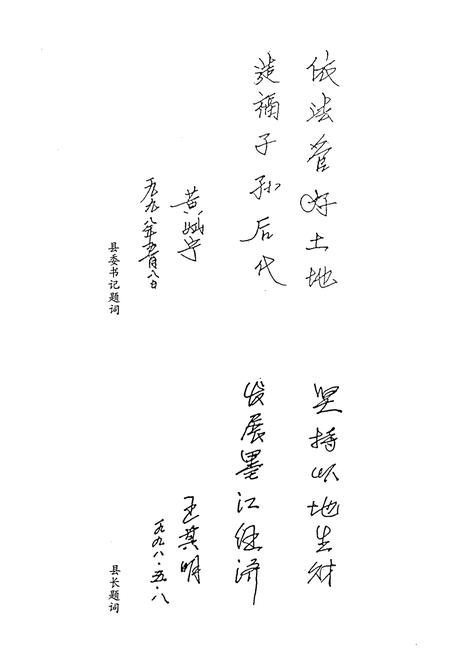 依法管好土地
造福子孙后代
黄斌宇
一九九八年五月八日
县委书记题词
坚持以地生财
发展墨江经济
王其明
一九九八·五·八
县长题词